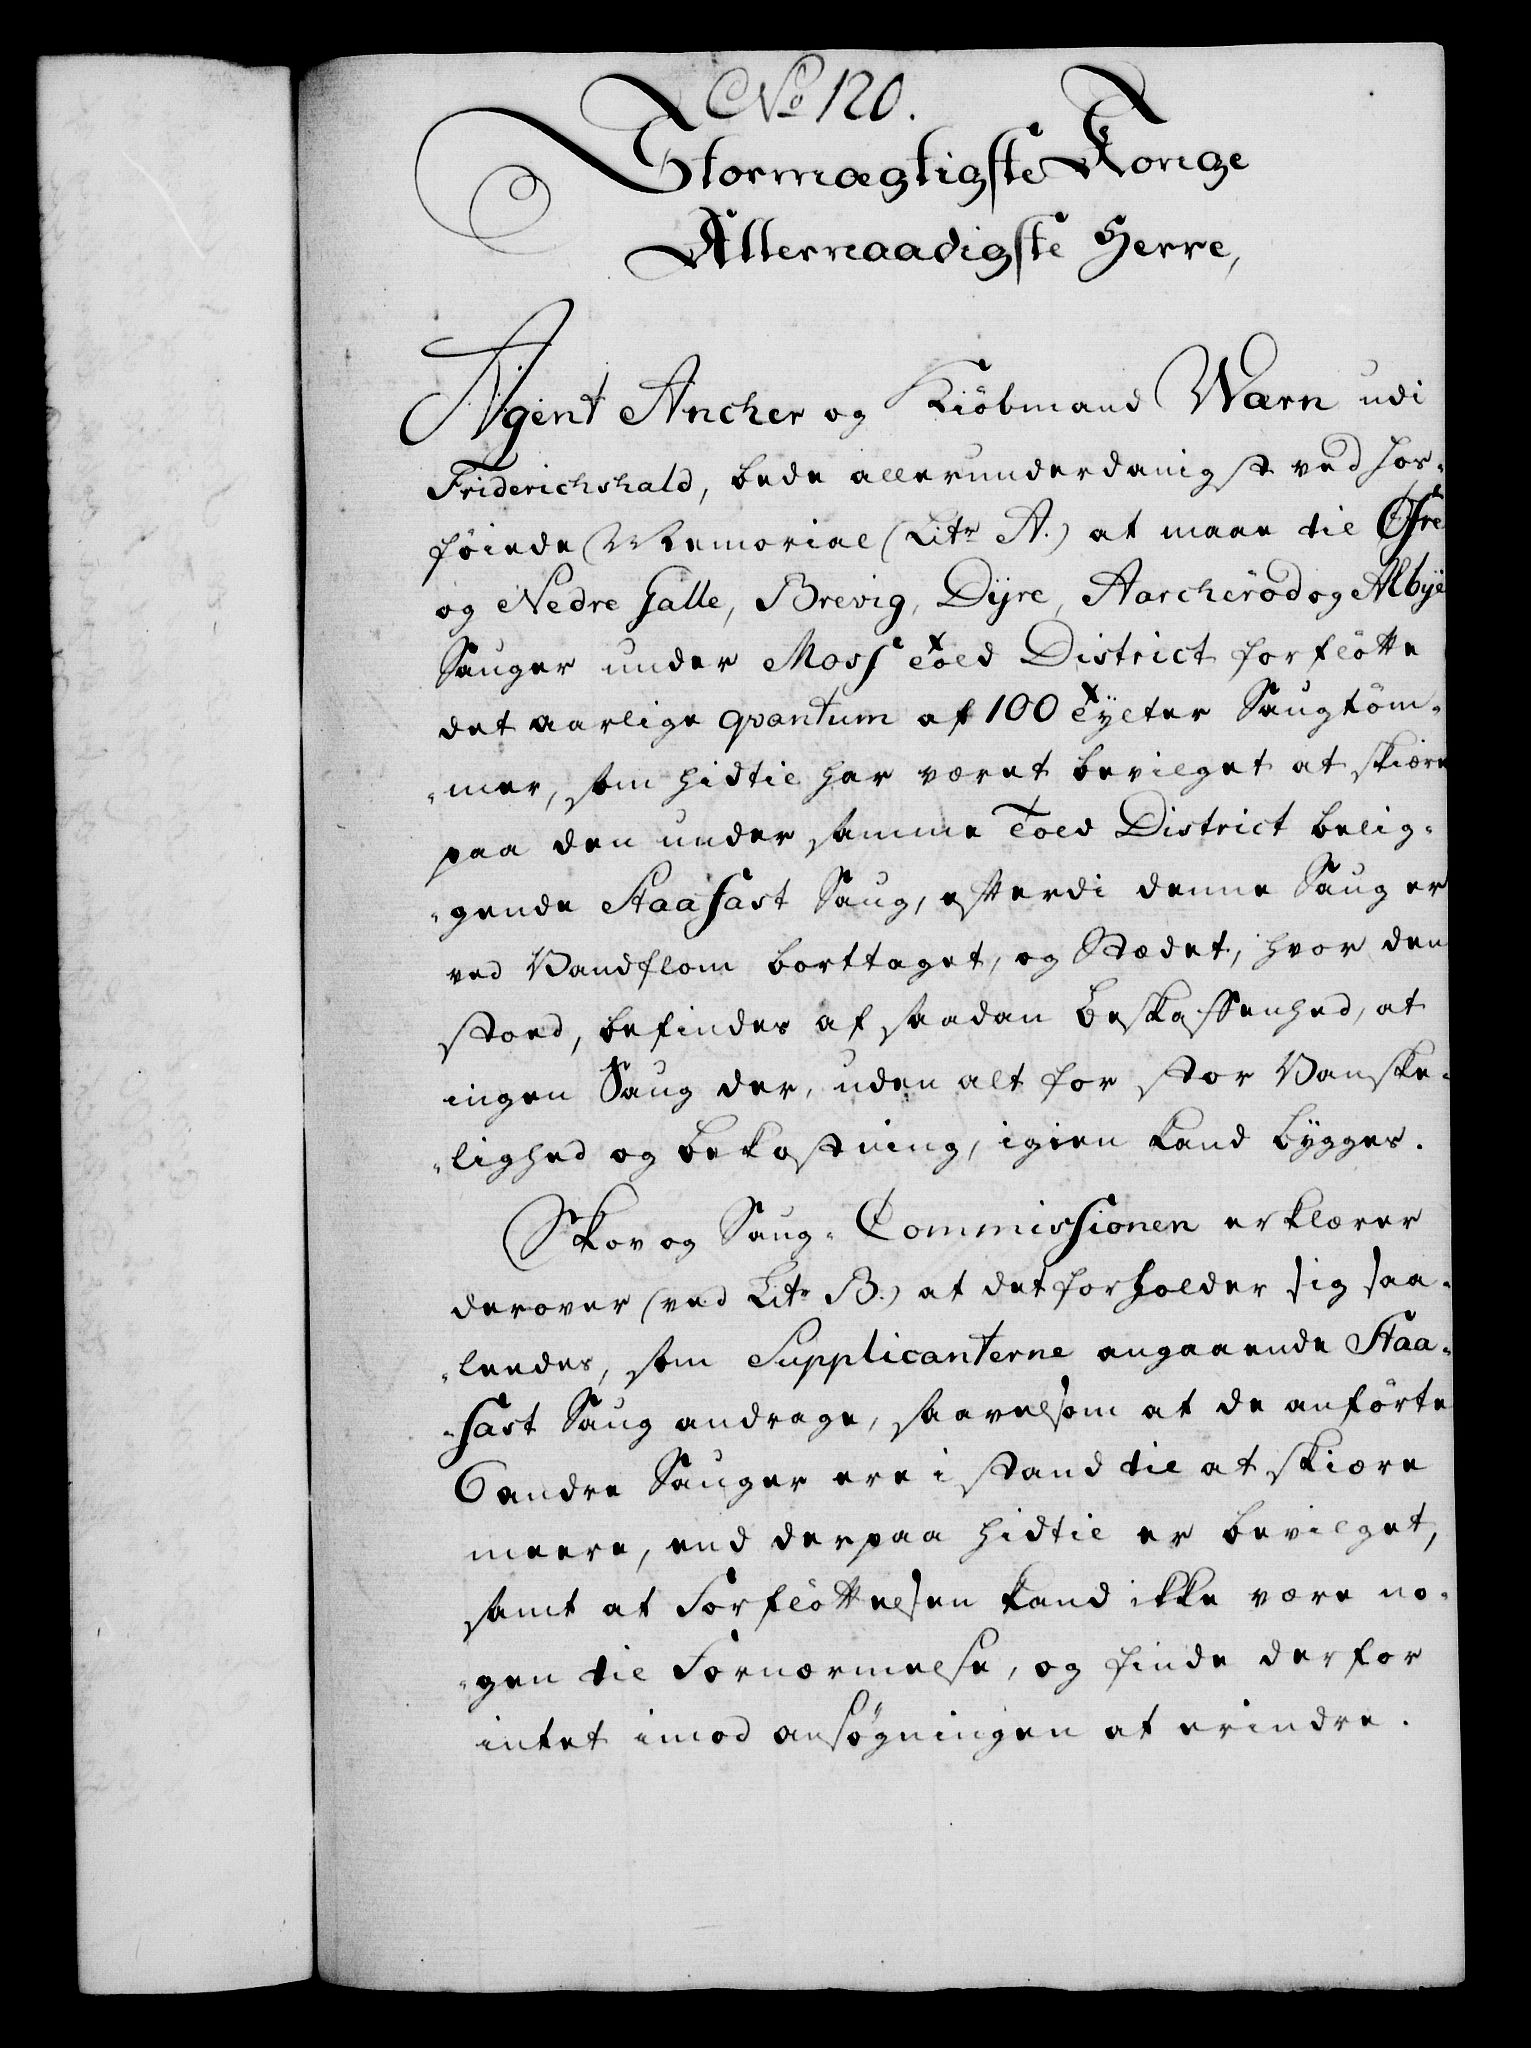 No 120.
Stormægtigste Konge
Allernaadigste Herre,
Agent Ancher og Kiöbmand Wærn udi
Friderichshald, bede allerunderdanigst ved hos-
föiede Memorial (Litr A.) at maae til Öfre
og Nedre Halle, Brevig, Dÿre, Aarcheröd og Albÿe
Sauger under Moss Told District forflötte
det aarlige qvantum af 100 Tÿlter Saugtöm-
-mer, som hidtil har været bevilget at skiære
paa den under samme Told District belig-
-gende Staafast Saug, efterdi denne Saug er
ved Vandflom borttaget, og Stædet, hvor den
stoed, befindes af saadan Beskaffenhed, at
ingen Saug der, uden alt for stor Vanske-
-lighed og bekostning, igien kand bÿgges.
Skov og Saug-Commissionen erklærer
derover (ved Litr B.) at det forholder sig saa-
-ledes, som Supplicanterne angaaende Staa-
-fast Saug andrage, saavelsom at de anförte
6 andre Sauger ere i stand til at skiære
meere, end derpaa hidtil er bevilget,
samt at Forflöttelsen kand ikke være no-
-gen til Fornærmelse, og finde derfor
intet imod ansögningen at erindre.